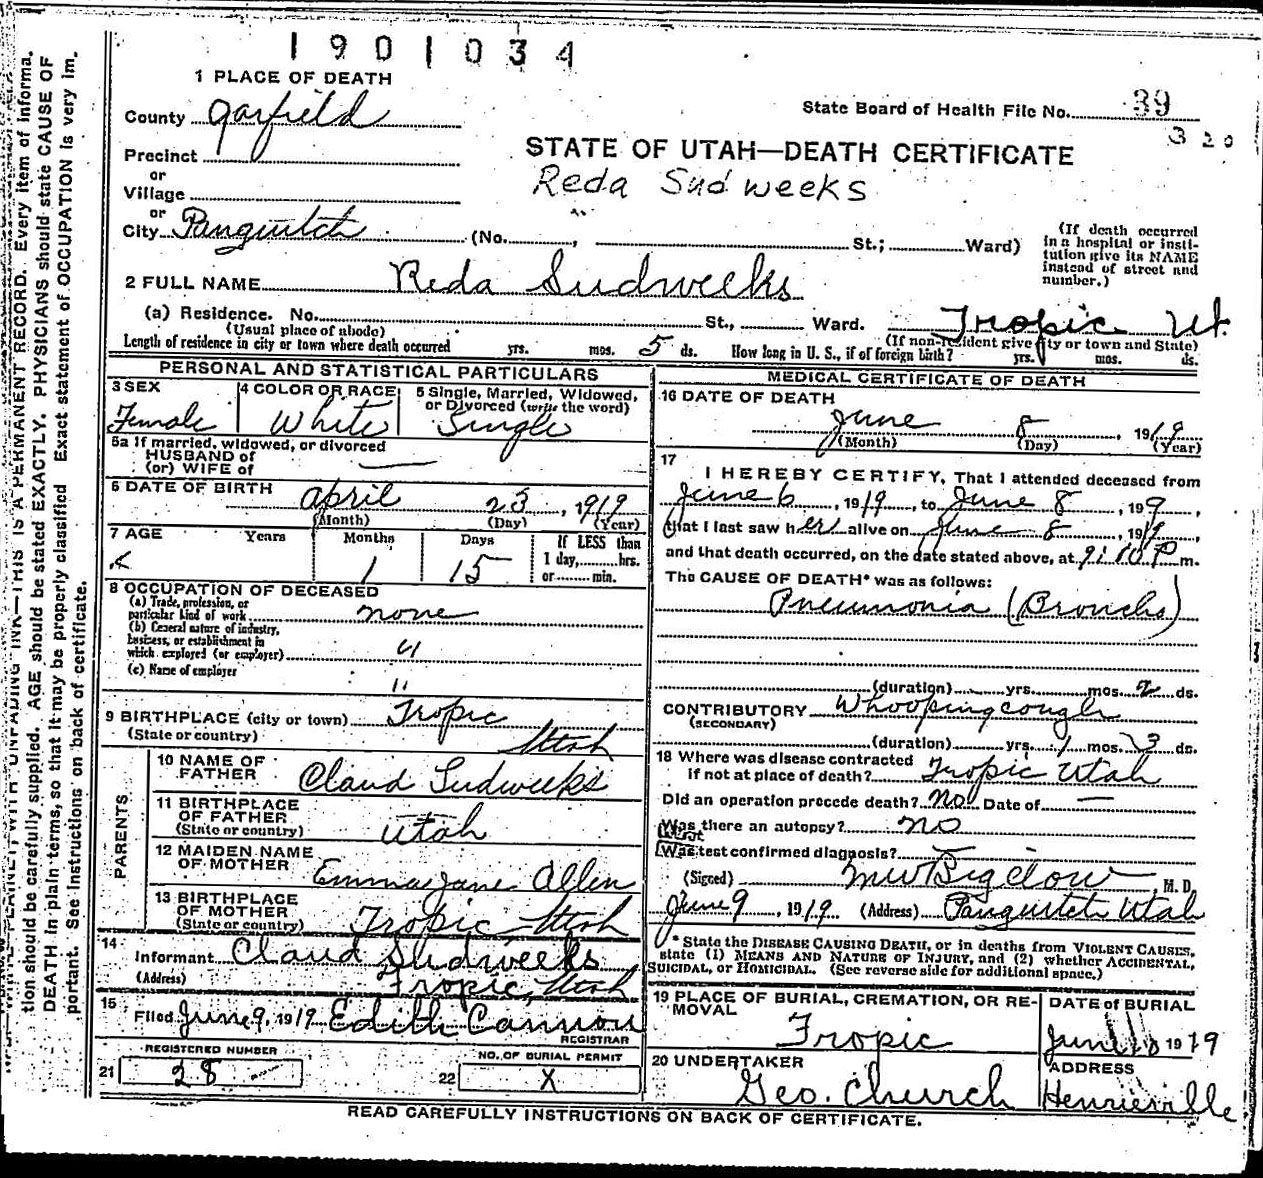 1901034
1 PLACE OF DEATH
State Board of Health File No. 39
320
County Garfield
STATE OF UTAH—DEATH CERTIFICATE
Reda Sudweeks
Precinct
or
Village
or
City Panguitch (No. , St.; Ward)
(If death occurred
in a hospital or insti-
tution give its NAME
instead of street and
number.)
2 FULL NAME Reda Sudweeks
(a) Residence. No. St., Ward. Tropic Ut.
(Usual place of abode) (If non-resident give city or town and State)
Length of residence in city or town where death occurred yrs. mos. 5 ds. How long in U. S., if of foreign birth? yrs. mos. ds.
PERSONAL AND STATISTICAL PARTICULARS
3 SEX
Female
4 COLOR OR RACE
White
5 Single, Married, Widowed,
or Divorced (write the word)
Single
5a If married, widowed, or divorced
HUSBAND of
(or) WIFE of —
6 DATE OF BIRTH April 23, 1919
(Month) (Day) (Year)
7 AGE Years Months Days If LESS than
1 day, hrs.
or min.
1 15
8 OCCUPATION OF DECEASED
(a) Trade, profession, or
particular kind of work none
(b) General nature of industry,
business, or establishment in
which employed (or employer) "
(c) Name of employer "
9 BIRTHPLACE (city or town) Tropic
(State or country) Utah
PARENTS
10 NAME OF
FATHER Claud Sudweeks
11 BIRTHPLACE
OF FATHER
(State or country) Utah
12 MAIDEN NAME
OF MOTHER Emma Jane Allen
13 BIRTHPLACE
OF MOTHER
(State or country) Tropic, Utah
14
Informant Claud Sudweeks
(Address) Tropic, Utah
15
Filed June 9, 1919 Edith Cannon
REGISTRAR
REGISTERED NUMBER
21 28
NO. OF BURIAL PERMIT
22 X
MEDICAL CERTIFICATE OF DEATH
16 DATE OF DEATH
June 8, 1919
(Month) (Day) (Year)
17
I HEREBY CERTIFY, That I attended deceased from
June 6, 1919, to June 8, 199,
that I last saw her alive on June 8, 1919,
and that death occurred, on the date stated above, at 9:10 P m.
The CAUSE OF DEATH* was as follows:
Pneumonia (Broncho)
(duration) yrs. mos. 2 ds.
CONTRIBUTORY Whooping cough
(SECONDARY)
(duration) yrs. 1 mos. 3 ds.
18 Where was disease contracted
if not at place of death? Tropic Utah
Did an operation precede death? No Date of —
Was there an autopsy? no
What test confirmed diagnosis? —
(Signed) M W Bigelow, M. D.
June 9, 1919 (Address) Panguitch Utah
* State the DISEASE CAUSING DEATH, or in deaths from VIOLENT CAUSES,
state (1) MEANS AND NATURE OF INJURY, and (2) whether ACCIDENTAL,
SUICIDAL, or HOMICIDAL. (See reverse side for additional space.)
19 PLACE OF BURIAL, CREMATION, OR RE-
MOVAL
Tropic
DATE of BURIAL
June 10 1919
20 UNDERTAKER
Geo. Church
ADDRESS
Henrieville
READ CAREFULLY INSTRUCTIONS ON BACK OF CERTIFICATE.
WRITE PLAINLY WITH UNFADING INK—THIS IS A PERMANENT RECORD. Every item of informa-
tion should be carefully supplied. AGE should be stated EXACTLY. PHYSICIANS should state CAUSE OF
DEATH in plain terms, so that it may be properly classified Exact statement of OCCUPATION is very im-
portant. See instructions on back of certificate.